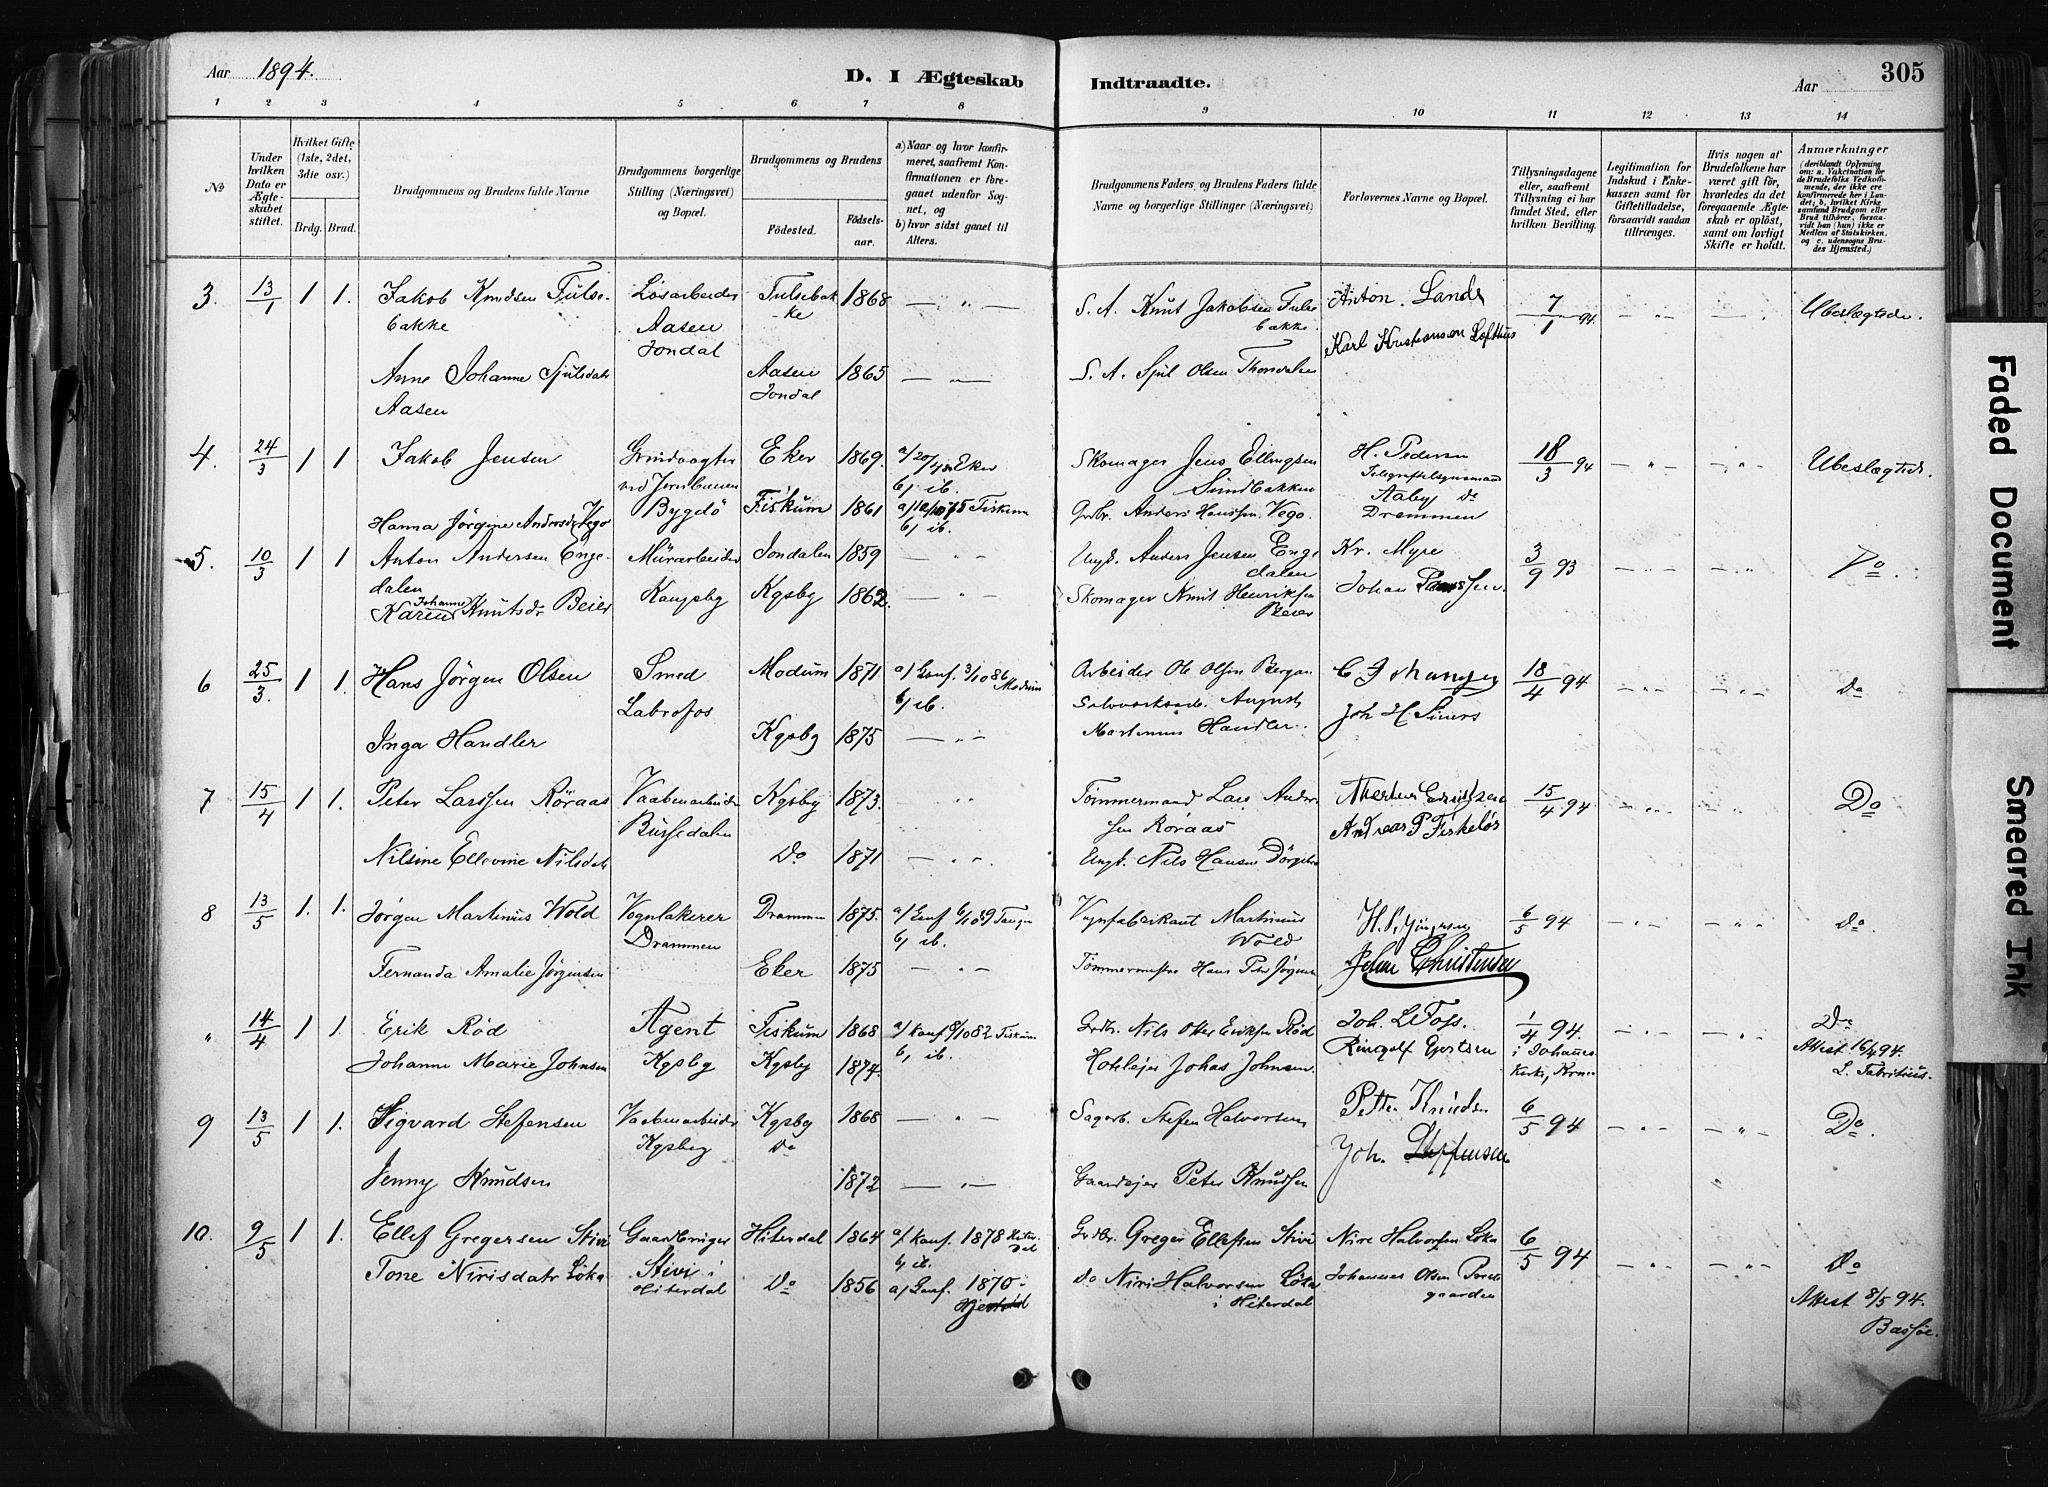 Aar 1894.
D. I Ægteskab Indtraadte.
Aar
305
1 2 3 4 5 6 7 8 9 10 11 12 13 14
No
Under hvilken Dato er Ægteskabet stiftet.
Hvilket Gifte (1ste, 2det, 3die osv.)
Brdg. Brud.
Brudgommens og Brudens fulde Navne
Brudgommens borgerlige Stilling (Næringsvei) og Bopæl.
Brudgommens og Brudens
Fødested. Fødselsaar.
a) Naar og hvor konfirmeret, saafremt Konfirmationen er foregaaet udenfor Sognet, og
b) hvor sidst gaaet til Alters.
Brudgommens Faders og Brudens Faders fulde Navne og borgerlige Stillinger (Næringsvei)
Forlovernes Navne og Bopæl.
Tillysningsdagene eller, saafremt Tillysning ei har fundet Sted, efter hvilken Bevilling.
Legitimation for Indskud i Enkekassen samt for Giftetilladelse, forsaavidt saadan tiltrænges.
Hvis nogen af Brudefolkene har været gift før, hvorledes da det foregaaende Ægteskab er opløst, samt om lovligt Skifte er holdt.
Anmærkninger
(deriblandt Oplysning om: a. Vakcination for de Brudefolks Vedkommende, der ikke ere konfirmerede her i Landet; b. hvilket Kirkesamfund Brudgom eller Brud tilhører, forsaavidt han (hun) ikke er Medlem af Statskirken, og c. udensogns Brudes Hjemsted.)
3. 13/1 1 1. Jakob Knudsen Tulsebakke Løsarbeider Aasen Jondal Tulsebakke 1868 — " — S. A. Knut Jakobsen Tulsebakke. Anton Lands 7/1 94. — " — — " — Ubeslægtede.
Karl Kristiansen Lofthus
Anne Johanne Sjulsdatr Aasen Aasen Jondal 1865 — " — S. A. Sjul Olsen Thondalen
4. 24/3 1 1 Jakob Jensen Grindvogter ved Jernbanen Bygdö Eker 1869. Eker b) ib. Skomager Jens Ellingsen Sundbakken H. Pedersen 18/3 94 — " — — " — Ubeslægtede.
Aaby do Drammen
Hanna Jörgine Andersdr Vego Fiskum 1861 Fiskum b) ib. Grdbr. Anders Hanssen Vego.
5. 10/3 1 1 Anton Andersen Engedalen Murarbeider Kongsbg Jondalen 1859 " — Ungk. Anders Jensen Engedalen Kr. Myre 3/9 93 — " — — " — Do.
Karen Johanne Knutsdr Beier Kgsbg 1862. — " — Skomager Knut Henriksen Beier Johan
6 25/3. 1 1. Hans Jörgen Olsen Smed Labrofos Modum 1871 a) Conf. 3/10 86 Modum b) ib. Arbeider Ole Olsen Bergan 18/4 94 — " — — " — do
Inga Handler Kgsbg 1875 — " — August Martinus Handler.
7 15/4 1 1. Peter Larssen Röraas Vaabenarbeider Bussedalen Kgsbg 1873. " " Tömmermand Lars Andersen Röraas 15/4 94 — " — — " — Do
Andreas P Fiskelös
Nilsine Ellevine Nilsdatr Do 1871 — " — Ungk. Nils Hansen
8 13/5 1. 1. Jørgen Martinus Wold Vognlakerer Drammen Drammen 1875. a) Conf. 6/10 89 Tangen b) ib. Vognfabrikant Martinius Wold 6/5 94 — " — — " — do.
Johan Christensen
Fernanda Amalie Jørgensen Eker 1875 — " — Tømmermester Hans Peter Jørgensen
" 14/4 1 1. Erik Rød Agent Kgsbg Fiskum 1868 a) Konf. 8/10 82 Fiskum b) ib. Grdbr. Nils Otter Eriksen Rød Joh. L. Foss. 1/4 94. i Johannes Kirke, — " — — " — Do
Attest 16/4 94. L. Fabritius.
Johanne Marie Johnsen Kgsbg 1874. Hoteleier Johas Johnsen. Ringolf Evertsen
9 13/5 1 1. Sigvard Stefensen Vaabenarbeider Kgsbg Kgsbg 1868 — " — Sagarb. Stefen Halvorsen Petter Knudsen 6/5 94 — " — — " — Do.
Do Joh. Steffensen
Jenny Knudsen 1872 — " — Gaardejer Peter Knudsen
10. 9/5 1 1. Ellef Gregersen Stivi Gaardbruger Stivi i Hiterdal Hiterdal 1864 a) Konf. 1878 Hiterdal b) ib. Grdbr. Greger Ellefsen Stivi Nire Halvorsen Løka 6/5 94 — " — — " — do
Tone Nirisdatr Løka Do 1856 a) Conf. 1870 do Niri Halvorsen Løka i Hiterdal Johannes Olsen
Attest 8/5 94. Bassøe.
Faded Document
Smeared Ink